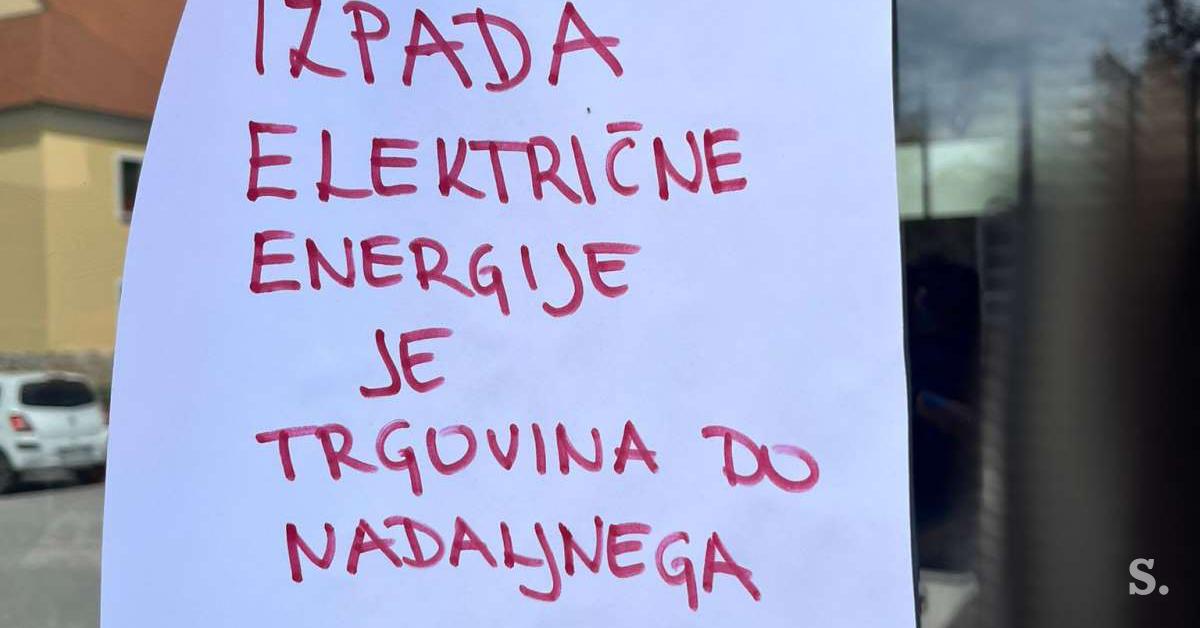 IZPADA
ELEKTRIČNE
ENERGIJE
JE
TRGOVINA DO
NADALJNEGA
S.